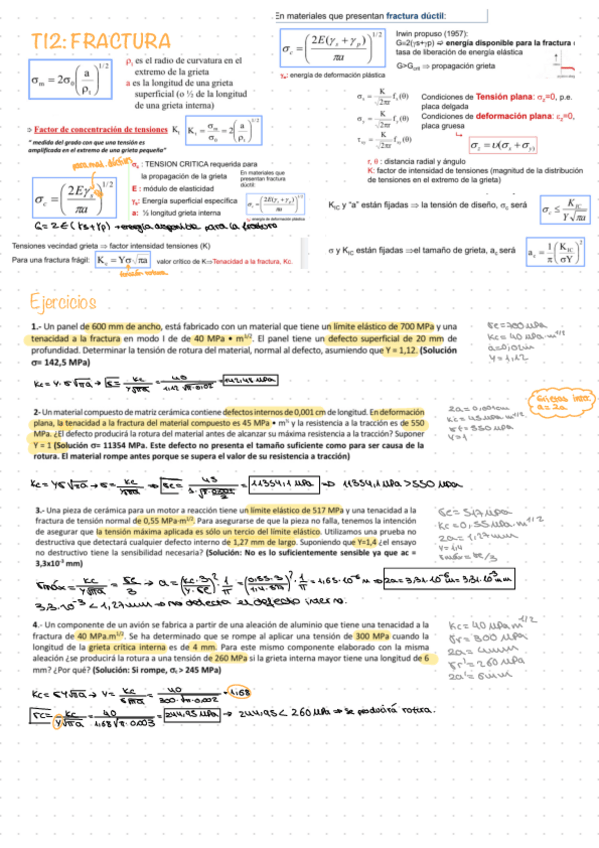 T12: FRACTURA
En materiales que presentan fractura dúctil:
σc = (2E(γs + γp) / πa)^1/2
γp: energía de deformación plástica
Irwin propuso (1957):
G=2(γs+γp) ⇨ energía disponible para la fractura o
tasa de liberación de energía elástica
G>Gcrit ⇨ propagación grieta
σm = 2σ0 (a / ρt)^1/2
ρt es el radio de curvatura en el
extremo de la grieta
a es la longitud de una grieta
superficial (o ½ de la longitud
de una grieta interna)
⇒ Factor de concentración de tensiones Kt Kt = σm / σ0 = 2(a / ρt)^1/2
" medida del grado con que una tensión es
amplificada en el extremo de una grieta pequeña"
σc = (2Eγs / πa)^1/2
σc : TENSION CRITICA requerida para
la propagación de la grieta
E : módulo de elasticidad
γs: Energía superficial específica
a: ½ longitud grieta interna
En materiales que
presentan fractura
dúctil:
σc = (2E(γs + γp) / πa)^1/2
γp: energía de deformación plástica
G = 2E(γs+γp) → energía disponible para la fractura
σx = K / √2πr fx(θ)
σy = K / √2πr fy(θ)
τxy = K / √2πr fxy(θ)
Condiciones de Tensión plana: σz=0, p.e.
placa delgada
Condiciones de deformación plana: εz=0,
placa gruesa
σz = υ(σx + σy)
r, θ : distancia radial y ángulo
K: factor de intensidad de tensiones (magnitud de la distribución
de tensiones en el extremo de la grieta)
KIC y "a" están fijadas ⇒ la tensión de diseño, σc será σc ≤ KIC / Y√πa
Tensiones vecindad grieta ⇒ factor intensidad tensiones (K)
Para una fractura frágil: Kc = Yσ√πa valor crítico de K⇒Tenacidad a la fractura, Kc.
tensión rotura
σ y KIC están fijadas ⇒el tamaño de grieta, ac será ac = 1/π (KIC / σY)²
Ejercicios
1.- Un panel de 600 mm de ancho, está fabricado con un material que tiene un límite elástico de 700 MPa y una
tenacidad a la fractura en modo I de de 40 MPa • m^1/2. El panel tiene un defecto superficial de 20 mm de
profundidad. Determinar la tensión de rotura del material, normal al defecto, asumiendo que Y = 1,12. (Solución
σ= 142,5 MPa)
σe = 700 MPa
Kc = 40 MPa·m^1/2
Y = 1,12
2- Un material compuesto de matriz cerámica contiene defectos internos de 0,001 cm de longitud. En deformación
plana, la tenacidad a la fractura del material compuesto es 45 MPa • m½ y la resistencia a la tracción es de 550
MPa. ¿El defecto producirá la rotura del material antes de alcanzar su máxima resistencia a la tracción? Suponer
Y = 1 (Solución σ= 11354 MPa. Este defecto no presenta el tamaño suficiente como para ser causa de la
rotura. El material rompe antes porque se supera el valor de su resistencia a tracción)
2a = 0,001cm
Kc = 45 MPa·m^1/2
σt = 550 MPa
Y = 1
= 11354,1 MPa ⇒ 11354,1 MPa > 550 MPa
3.- Una pieza de cerámica para un motor a reacción tiene un límite elástico de 517 MPa y una tenacidad a la
fractura de tensión normal de 0,55 MPa·m^1/2. Para asegurarse de que la pieza no falla, tenemos la intención
de asegurar que la tensión máxima aplicada es sólo un tercio del límite elástico. Utilizamos una prueba no
destructiva que detectará cualquier defecto interno de 1,27 mm de largo. Suponiendo que Y=1,4 ¿el ensayo
no destructivo tiene la sensibilidad necesaria? (Solución: No es lo suficientemente sensible ya que ac =
3,3x10⁻³ mm)
σe = 517 MPa
Kc = 0,55 MPa·m^1/2
2a = 1,27mm
Y = 1,4
σmáx = σe/3
σmáx = Kc / Y√πa = σe / 3 → a = (Kc·3 / Y·σe)² · 1/π = (0,55·3 / 1,4·517)² · 1/π = 1,65·10⁻⁶ m ⇒ 2a = 3,31·10⁻⁶ m = 3,31·10⁻³ mm
3,3·10⁻³ < 1,27mm ⇒ no detecta el defecto interno.
4.- Un componente de un avión se fabrica a partir de una aleación de aluminio que tiene una tenacidad a la
fractura de 40 MPa.m^1/2. Se ha determinado que se rompe al aplicar una tensión de 300 MPa cuando la
longitud de la grieta crítica interna es de 4 mm. Para este mismo componente elaborado con la misma
aleación ¿se producirá la rotura a una tensión de 260 MPa si la grieta interna mayor tiene una longitud de 6
mm? ¿Por qué? (Solución: Si rompe, σc > 245 MPa)
Kc = 40 MPa·m^1/2
σr = 300 MPa
2a = 4mm
σr' = 260 MPa
2a' = 6mm
Kc = σY√πa → Y = Kc / σ√πa = 40 / 300·√π·0,002 = 1,68
σc = Kc / Y√πa = 40 / 1,68√π·0,003 = 244,95 MPa → 244,95 < 260 MPa ⇒ se producirá rotura.